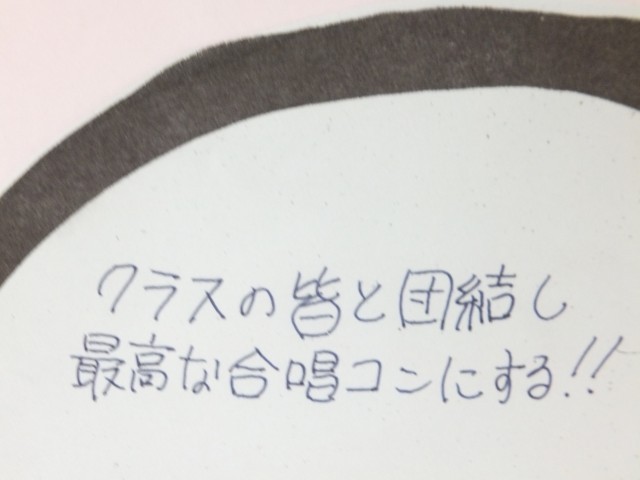 クラスの皆と団結し
最高な合唱コンにする!!